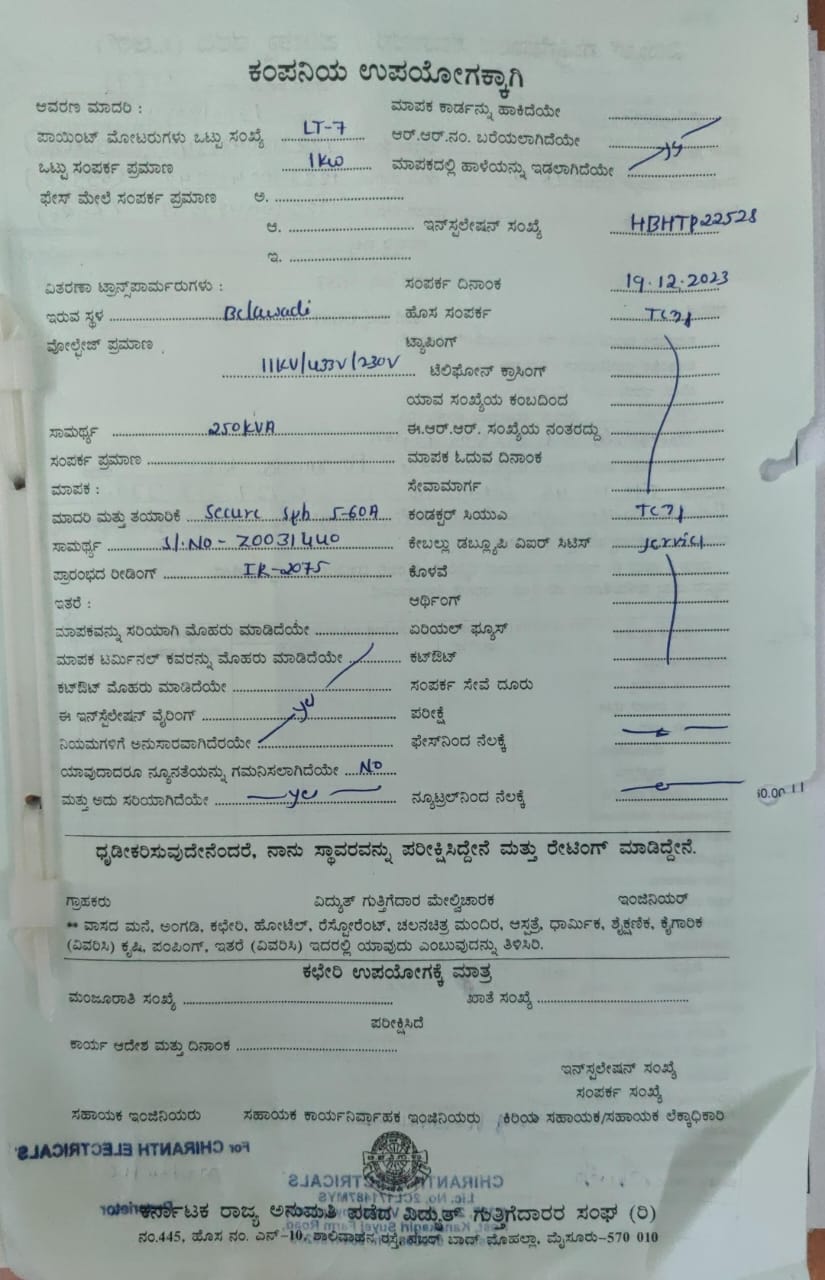 ಕಂಪನಿಯ ಉಪಯೋಗಕ್ಕಾಗಿ
ಆವರಣ ಮಾದರಿ : ಮಾಪಕ ಕಾರ್ಡನ್ನು ಹಾಕಿದೆಯೇ
ಪಾಯಿಂಟ್ ಮೋಟರುಗಳು ಒಟ್ಟು ಸಂಖ್ಯೆ LT-7 ಆರ್.ಆರ್.ನಂ. ಬರೆಯಲಾಗಿದೆಯೇ
ಒಟ್ಟು ಸಂಪರ್ಕ ಪ್ರಮಾಣ 1KW ಮಾಪಕದಲ್ಲಿ ಹಾಳೆಯನ್ನು ಇಡಲಾಗಿದೆಯೇ yes
ಫೇಸ್ ಮೇಲೆ ಸಂಪರ್ಕ ಪ್ರಮಾಣ ಅ.
ಆ. ಇನ್‌ಸ್ಟಲೇಷನ್ ಸಂಖ್ಯೆ HBHTP22528
ಇ.
ವಿತರಣಾ ಟ್ರಾನ್ಸ್‌ಪಾರ್ಮರುಗಳು : ಸಂಪರ್ಕ ದಿನಾಂಕ 19.12.2023
ಇರುವ ಸ್ಥಳ Belawadi ಹೊಸ ಸಂಪರ್ಕ
ವೋಲ್ಟೇಜ್ ಪ್ರಮಾಣ ಟ್ಯಾಪಿಂಗ್
11KV/433V/230V ಟೆಲಿಫೋನ್ ಕ್ರಾಸಿಂಗ್
ಯಾವ ಸಂಖ್ಯೆಯ ಕಂಬದಿಂದ
ಸಾಮರ್ಥ್ಯ 250KVA ಈ.ಆರ್.ಆರ್. ಸಂಖ್ಯೆಯ ನಂತರದ್ದು
ಸಂಪರ್ಕ ಪ್ರಮಾಣ ಮಾಪಕ ಓದುವ ದಿನಾಂಕ
ಮಾಪಕ : ಸೇವಾಮಾರ್ಗ
ಮಾದರಿ ಮತ್ತು ತಯಾರಿಕೆ Secure Sph 5-60A ಕಂಡಕ್ಟರ್ ಸಿಯುಎ
ಸಾಮರ್ಥ್ಯ Sl.NO - Z0031440 ಕೇಬಲ್ಲು ಡಬ್ಲ್ಯೂಪಿ ವಿಐರ್ ಸಿಟಿಸ್ service
ಪ್ರಾರಂಭದ ರೀಡಿಂಗ್ IR-2075 ಕೊಳವೆ
ಇತರೆ : ಆರ್ಥಿಂಗ್
ಮಾಪಕವನ್ನು ಸರಿಯಾಗಿ ಮೊಹರು ಮಾಡಿದೆಯೇ ಏರಿಯಲ್ ಫ್ಯೂಸ್
ಮಾಪಕ ಟರ್ಮಿನಲ್ ಕವರನ್ನು ಮೊಹರು ಮಾಡಿದೆಯೇ ಕಟ್‌ಔಟ್
ಕಟ್‌ಔಟ್ ಮೊಹರು ಮಾಡಿದೆಯೇ ಸಂಪರ್ಕ ಸೇವೆ ದೂರು
ಈ ಇನ್‌ಸ್ಟೆಲೇಷನ್ ವೈರಿಂಗ್ yes ಪರೀಕ್ಷೆ
ನಿಯಮಗಳಿಗೆ ಅನುಸಾರವಾಗಿದೆರಯೇ ಫೇಸ್‌ನಿಂದ ನೆಲಕ್ಕೆ
ಯಾವುದಾದರೂ ನ್ಯೂನತೆಯನ್ನು ಗಮನಿಸಲಾಗಿದೆಯೇ No
ಮತ್ತು ಅದು ಸರಿಯಾಗಿದೆಯೇ yes ನ್ಯೂಟ್ರಲ್‌ನಿಂದ ನೆಲಕ್ಕೆ
ಧೃಡೀಕರಿಸುವುದೇನೆಂದರೆ, ನಾನು ಸ್ಥಾವರವನ್ನು ಪರೀಕ್ಷಿಸಿದ್ದೇನೆ ಮತ್ತು ರೇಟಿಂಗ್ ಮಾಡಿದ್ದೇನೆ.
ಗ್ರಾಹಕರು ವಿದ್ಯುತ್ ಗುತ್ತಿಗೆದಾರ ಮೇಲ್ವಿಚಾರಕ ಇಂಜಿನಿಯರ್
** ವಾಸದ ಮನೆ, ಅಂಗಡಿ, ಕಛೇರಿ, ಹೋಟೆಲ್, ರೆಸ್ಟೋರೆಂಟ್, ಚಲನಚಿತ್ರ ಮಂದಿರ, ಆಸ್ಪತ್ರೆ, ಧಾರ್ಮಿಕ, ಶೈಕ್ಷಣಿಕ, ಕೈಗಾರಿಕೆ
(ವಿವರಿಸಿ) ಕೃಷಿ, ಪಂಪಿಂಗ್, ಇತರೆ (ವಿವರಿಸಿ) ಇದರಲ್ಲಿ ಯಾವುದು ಎಂಬುವುದನ್ನು ತಿಳಿಸಿರಿ.
ಕಛೇರಿ ಉಪಯೋಗಕ್ಕೆ ಮಾತ್ರ
ಮಂಜೂರಾತಿ ಸಂಖ್ಯೆ ಖಾತೆ ಸಂಖ್ಯೆ
ಪರೀಕ್ಷಿಸಿದೆ
ಕಾರ್ಯ ಆದೇಶ ಮತ್ತು ದಿನಾಂಕ
ಇನ್‌ಸ್ಟಲೇಷನ್ ಸಂಖ್ಯೆ
ಸಂಪರ್ಕ ಸಂಖ್ಯೆ
ಸಹಾಯಕ ಇಂಜಿನಿಯರು ಸಹಾಯಕ ಕಾರ್ಯನಿರ್ವಾಹಕ ಇಂಜಿನಿಯರು ಕಿರಿಯ ಸಹಾಯಕ/ಸಹಾಯಕ ಲೆಕ್ಕಾಧಿಕಾರಿ
For CHIRANTH ELECTRICALS
CHIRANTH ELECTRICALS
Proprietor
ಕರ್ನಾಟಕ ರಾಜ್ಯ ಅನುಮತಿ ಪಡೆದ ವಿದ್ಯುತ್ ಗುತ್ತಿಗೆದಾರರ ಸಂಘ (ರಿ)
ನಂ.445, ಹೊಸ ನಂ. ಎನ್-10, ಶಾಲಿವಾಹನ ರಸ್ತೆ, ನಜರ್ ಬಾದ್ ಮೊಹಲ್ಲಾ, ಮೈಸೂರು-570 010